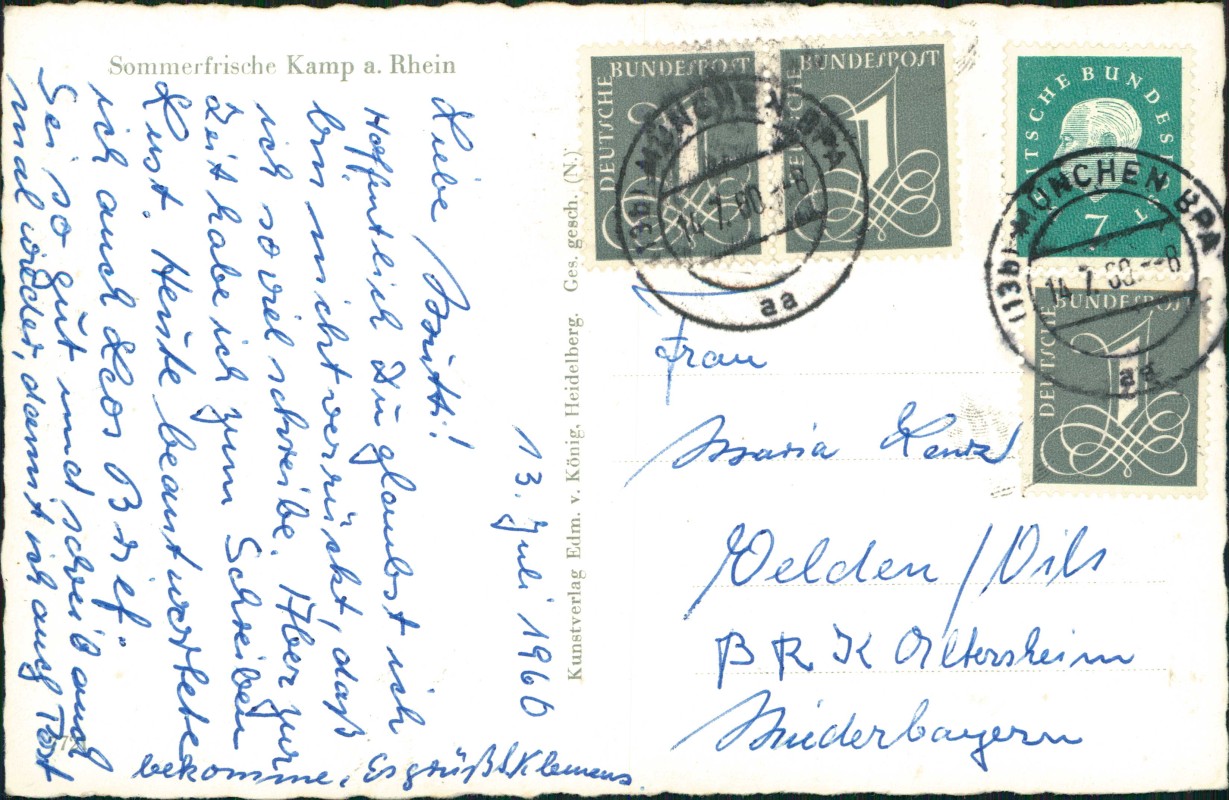 Sommerfrische Kamp a. Rhein
Liebe Britti!
Hoffentlich Du glaubst ich
bin nicht verrückt, daß
ich soviel schreibe. Aber zur
Zeit habe ich zum Schreiben
Lust. Heute beantwortete
ich auch Leos Brief.
Sei so gut und schreib auch
mal wieder, damit ich auch Post
bekomme. Es grüßt Klemens
13. Juli 1960
Kunstverlag Edm. v. König, Heidelberg. Ges. gesch. (N.)
DEUTSCHE BUNDESPOST
1
DEUTSCHE BUNDESPOST
1
DEUTSCHE BUNDES
7
DEUTSCHE BUNDESPOST
1
(13b) MÜNCHEN BPA
14.7.60.--8
aa
(13b) MÜNCHEN BPA
14.7.60.--8
aa
Frau
Maria
Velden/Vils
BRK Altersheim
Niederbayern